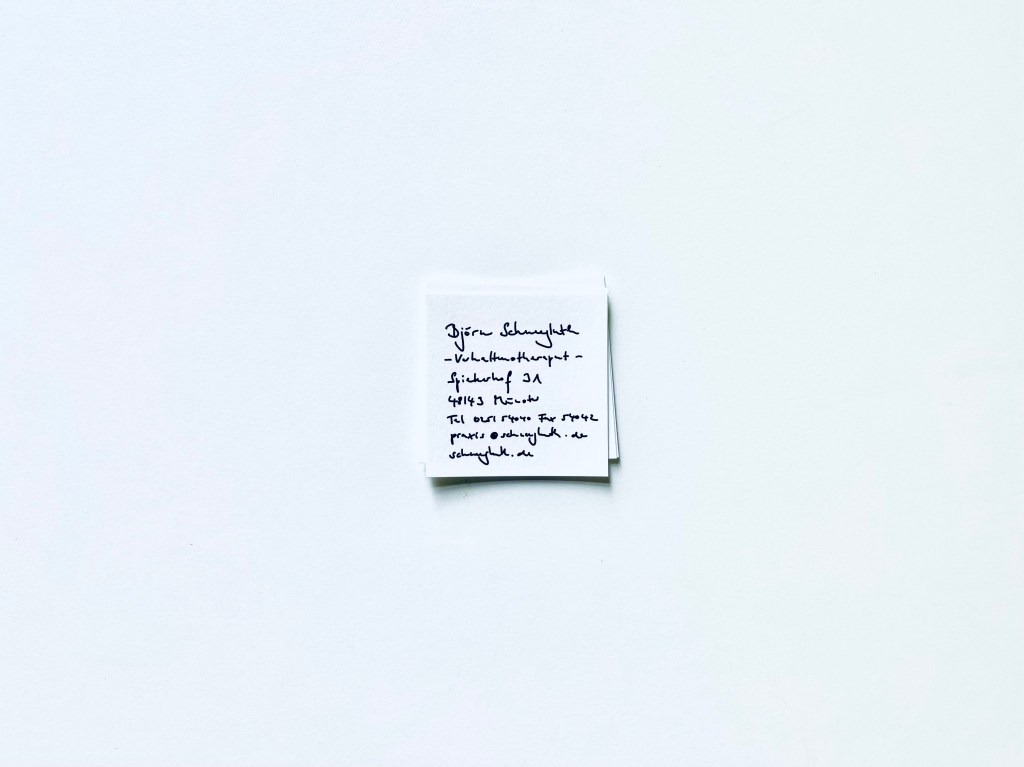 Björn Schwegluth
- Verhaltenstherapeut -
Spiekerhof 31
48143 Münster
Tel 0251 54040 Fax 54042
praxis@schwegluth.de
schwegluth.de